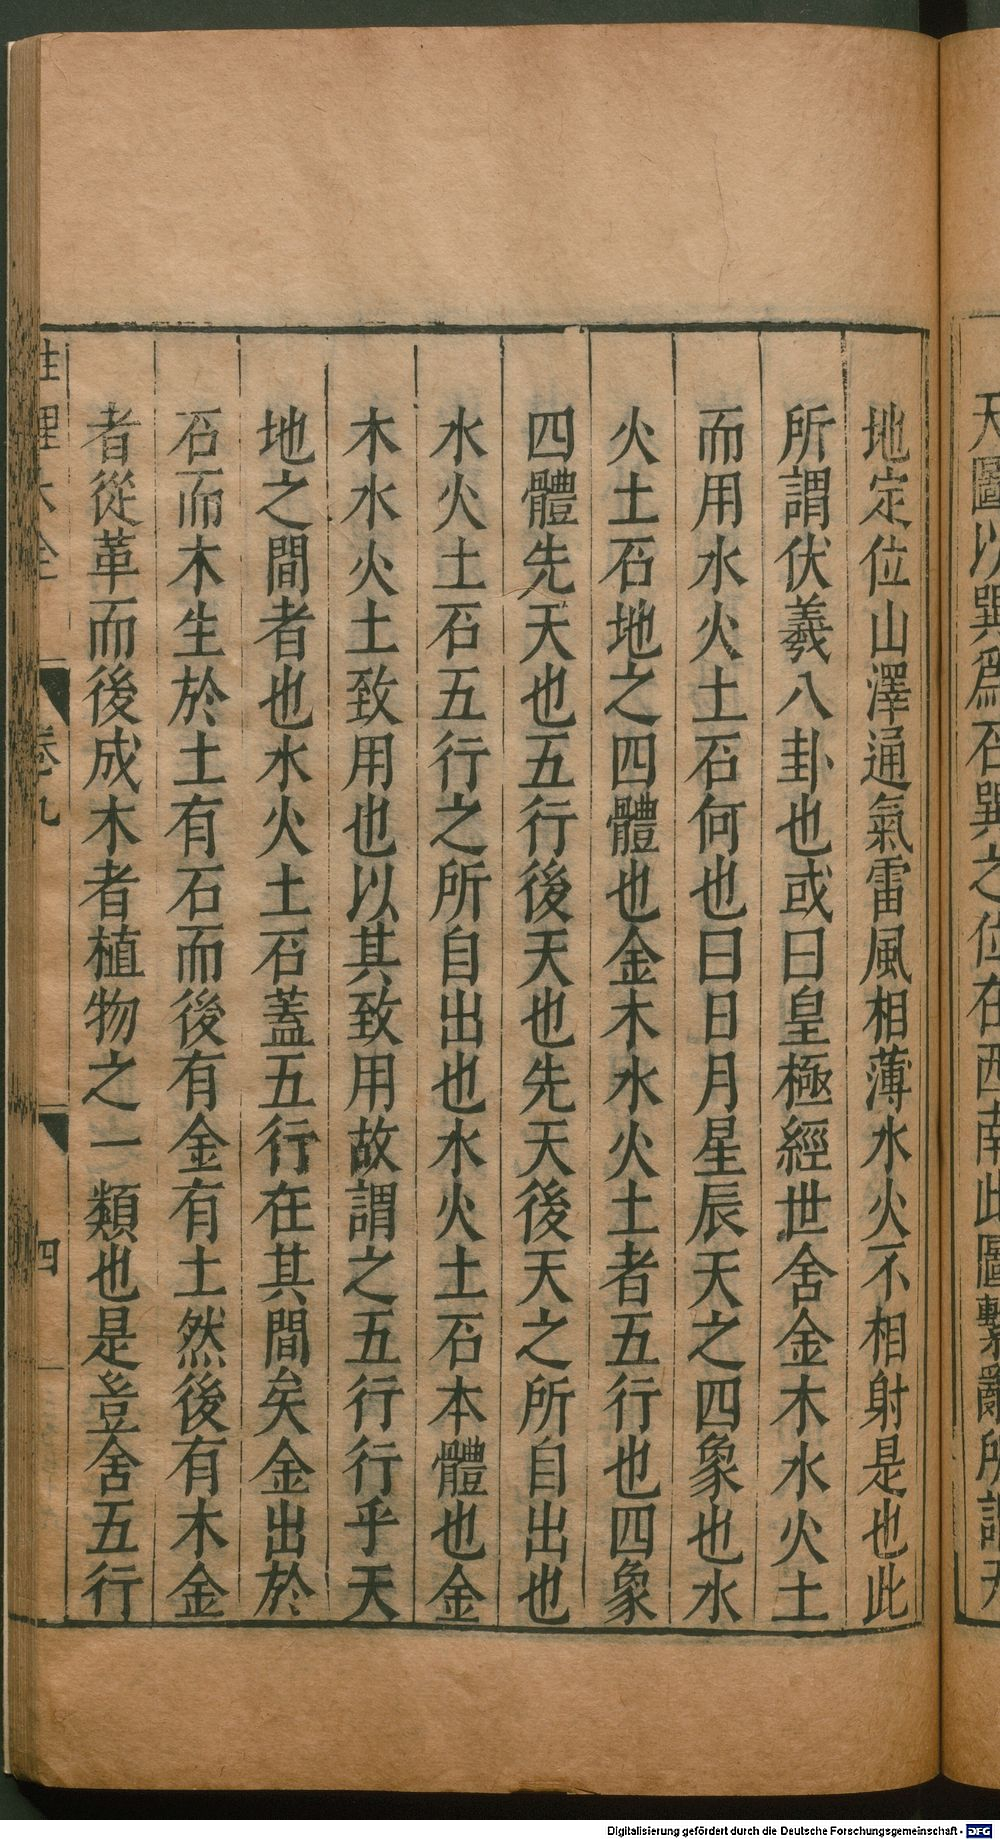 天圖以巽爲石巽之位在西南此圖繫辭所謂天
地定位山澤通氣雷風相薄水火不相射是也此
所謂伏羲八卦也或曰皇極經世舍金木水火土
而用水火土石何也曰日月星辰天之四象也水
火土石地之四體也金木水火土者五行也四象
四體先天也五行後天也先天後天之所自出也
水火土石五行之所自出也水火土石本體也金
木水火土致用也以其致用故謂之五行行乎天
地之間者也水火土石蓋五行在其間矣金出於
石而木生於土有石而後有金有土然後有木金
者從革而後成木者植物之一類也是豈舍五行
性理大全 卷九 四
Digitalisierung gefördert durch die Deutsche Forschungsgemeinschaft - DFG